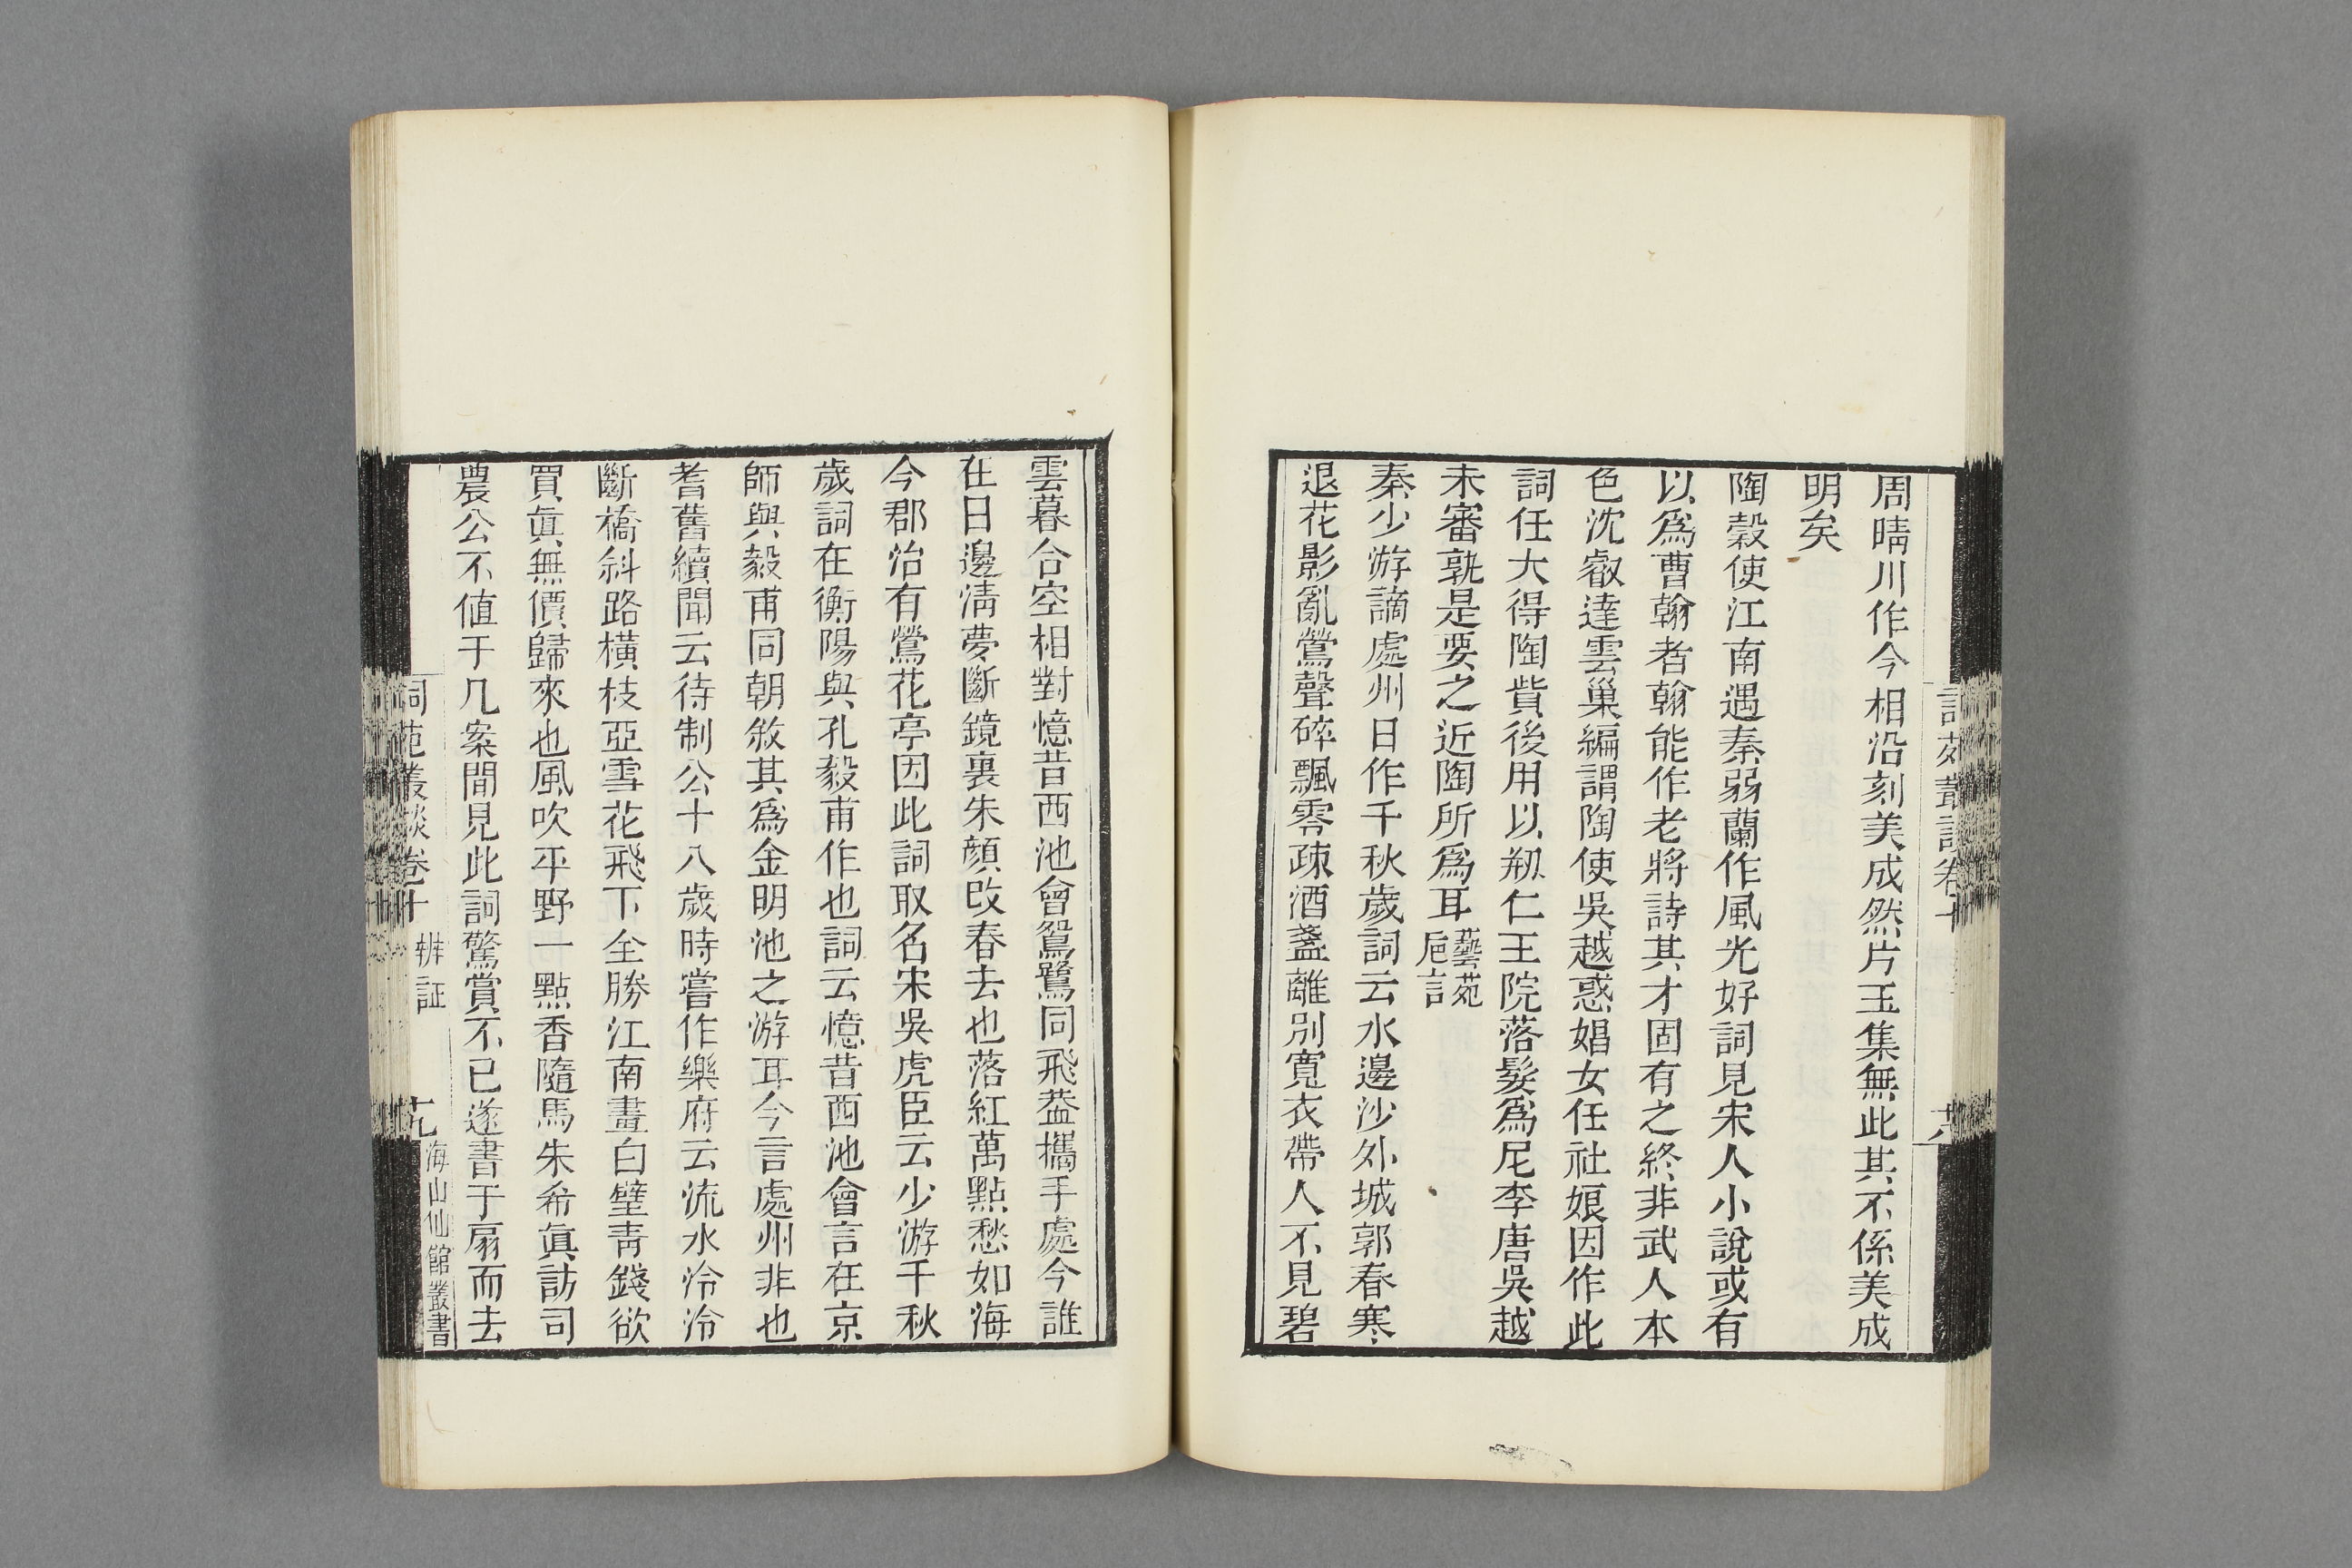 周晴川作今相沿刻美成然片玉集無此其不係美成
明矣
陶穀使江南遇秦弱蘭作風光好詞見宋人小說或有
以爲曹翰者翰能作老將詩其才固有之終非武人本
色沈叡達雲巢編謂陶使吳越惑娼女任社娘因作此
詞任大得陶貲後用以刱仁王院落髮爲尼李唐吳越
未審孰是要之近陶所爲耳藝苑
巵言
秦少游謫處州日作千秋歲詞云水邊沙外城郭春寒
退花影亂鶯聲碎飄零疎酒盞離別寬衣帶人不見碧
雲暮合空相對憶昔西池會鴛鷺同飛葢攜手處今誰
在日邊淸夢斷鏡裏朱顏改春去也落紅萬點愁如海
今郡治有鶯花亭因此詞取名宋吳虎臣云少游千秋
歲詞在衡陽與孔毅甫作也詞云憶昔西池會言在京
師與毅甫同朝敘其爲金明池之游耳今言處州非也
耆舊續聞云待制公十八歲時嘗作樂府云流水泠泠
斷橋斜路橫枝亞雪花飛下全勝江南畫白壁靑錢欲
買眞無價歸來也風吹平野一點香隨馬朱希眞訪司
農公不値于几案間見此詞驚賞不已遂書于扇而去
詞苑叢談卷十 辨証 十九
海山仙館叢書